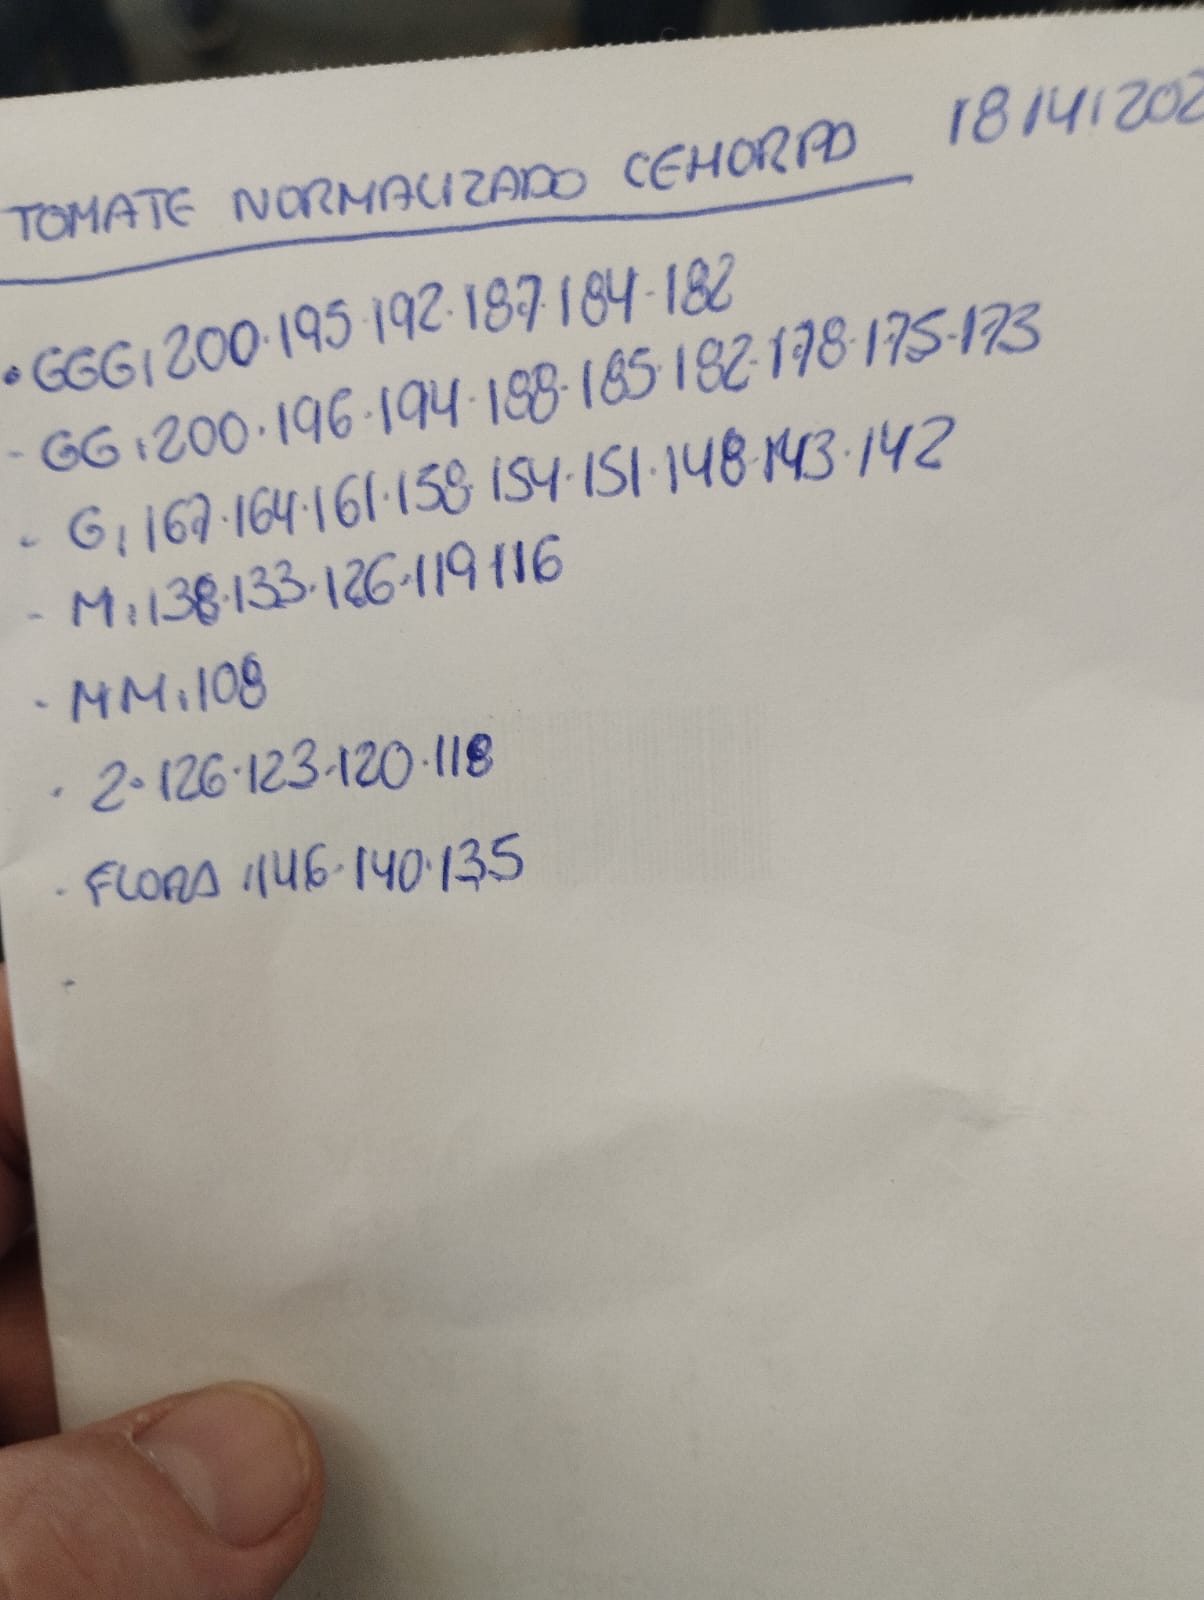 TOMATE NORMALIZADO CEHORPA 18/4/202
• GGG: 200·195·192·187·184·182
- GG: 200·196·194·188·185·182·178·175·173
- G: 167·164·161·158·154·151·148·143·142
- M: 138·133·126·119·116
- MM: 108
- 2· 126·123·120·118
- FLORA: 146·140·135
-